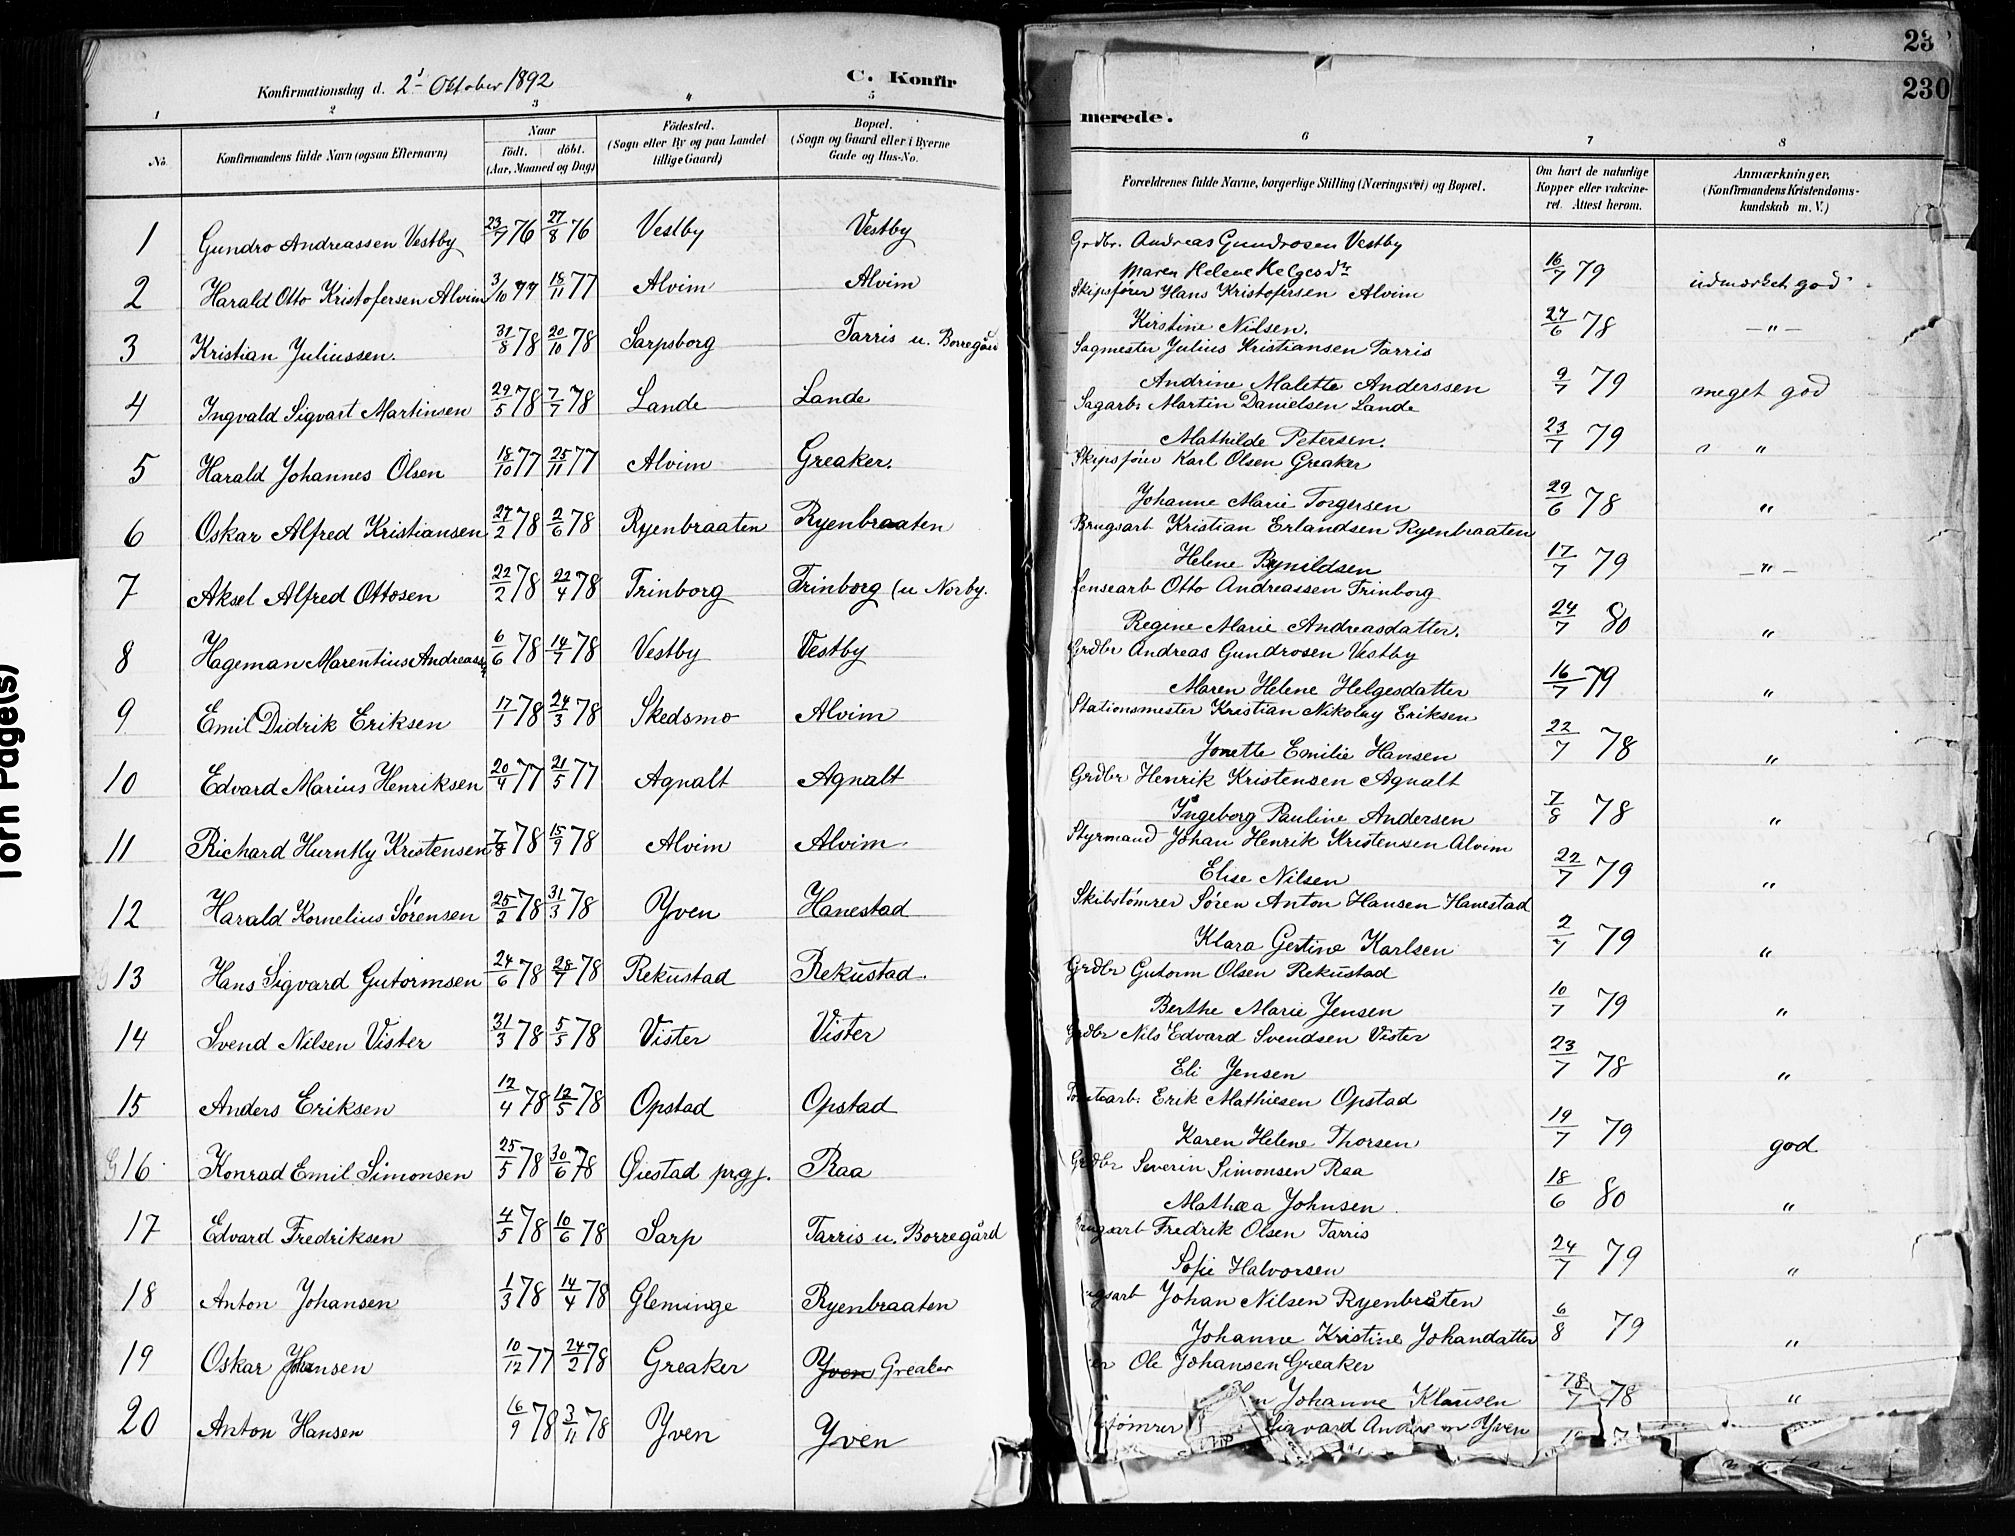 Konfirmationsdag d. 2' Oktober 1892
C. Konfir
merede.
23
230
1 2 3 4 5 6 7 8
No. Konfirmandens fulde Navn (ogsaa Efternavn) Naar født. døbt. (Aar, Maaned og Dag) Fødested. (Sogn eller By og paa Landet tillige Gaard) Bopæl. (Sogn og Gaard eller i Byerne Gade og Hus-No. Forældrenes fulde Navne, borgerlige Stilling (Næringsvei) og Bopæl. Om havt de naturlige Kopper eller vakcineret. Attest herom. Anmærkninger. (Konfirmandens Kristendomskundskab m. V.)
1 Gundro Andreassen Vestby 23/7 76 27/8 76 Vestby Vestby Grdbr. Andreas Gundrosen Vestby
Maren Helene Helgesdr 16/7 79 udmærket god
2 Harald Otto Kristofersen Alvim 3/10 77 18/11 77 Alvim Alvim Skipsfører Hans Kristofersen Alvim
Kirstine Nilsen. 27/6 78 –"–
3 Kristian Juliussen. 31/8 78 20/10 78 Sarpsborg Tarris u. Borregård Sagmester Julius Kristiansen Tarris
Andrine Malette Anderssen 9/7 79 meget god
4 Ingvald Sigvart Martinsen 29/5 78 7/7 78 Lande Lande Sagarb. Martin Danielsen Lande
Mathilde Petersen. 23/7 79 " "
5 Harald Johannes Olsen 18/10 77 25/11 77 Alvim Greaker. Skipsfører Karl Olsen Greaker
Johanne Marie Torgersen 29/6 78 "
6 Oskar Alfred Kristiansen 27/2 78 2/6 78 Ryenbraaten Ryenbraaten Brugsarb Kristian Erlandsen Ryenbraaten
Helene Bynildsen 17/7 79 –"–
7 Aksel Alfred Ottosen 22/2 78 22/4 78 Trinborg Trinborg (u Norby. Lensearb Otto Andreassen Trinborg
Regine Marie Andreasdatter. 24/7 80 "
8 Hageman Marentius Andreassen 6/6 78 14/7 78 Vestby Vestby Grdbr Andreas Gundrosen Vestby
Maren Helene Helgesdatter 16/7 79 "
9 Emil Didrik Eriksen 17/1 78 24/3 78 Skedsmo Alvim Stationsmester Kristian Nikolay Eriksen
Jonette Emilie Hansen 22/7 78 "
10 Edvard Marius Henriksen 20/4 77 21/5 77 Agnalt Agnalt Grdbr Henrik Kristensen Agnalt
Ingeborg Pauline Andersen 7/8 78 "
11 Richard Hurntly Kristensen 7/8 78 15/9 78 Alvim Alvim. Styrmand Johan Henrik Kristensen Alvim
Elise Nilsen 22/7 79 "
12 Harald Kornelius Sørensen 25/2 78 31/3 78 Yven Hanestad Skibstømrer Søren Anton Hansen Hanestad
Klara Gertine Karlsen 2/7 79 "
13 Hans Sigvard Gutormsen 24/6 78 28/7 78 Rekustad Rekustad. Grdbr Gutorm Olsen Rekustad
Berthe Marie Jensen 10/7 79 "
14 Svend Nilsen Vister 31/3 78 5/5 78 Vister Vister Grdbr Nils Edvard Svendsen Vister
Eli Jensen 23/7 78 "
15 Anders Eriksen 12/4 78 12/5 78 Opstad Opstad Tomtearb. Erik Mathiesen Opstad
Karen Helene Thorsen 19/7 79 god
G 16 Konrad Emil Simonsen 25/5 78 30/6 78 Øiestad prgj. Raa Grdbr Severin Simonsen Raa
Mathea Johnsen 18/6 80 "
17 Edvard Fredriksen 4/5 78 10/6 78 Sarp Tarris u. Borregård Brugsarb Fredrik Olsen Tarris
Sofie Halvorsen 24/7 79 "
18 Anton Johansen 1/3 78 14/4 78 Gleminge Ryenbraaten gsarb Johan Nilsen Ryenbråten
Johanne Kristine Johandatter 6/8 79 "
19 Oskar Johansen 10/12 77 24/2 78 Greaker Yven Greaker er Ole Johansen Greaker
n Johanne Klausen 78/7 78 "
20 Anton Hansen 16/9 78 3/11 78 Yven Yven tømrer Sigvard Anders n Yven
Torn Page(s)